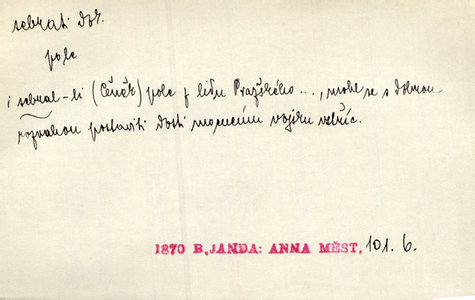 sebrati dok.
pole
i sebral-li (Čeněk) pole z lidu Pražského ..., mohl se s dobrou
rozvahou postaviti dosti mocnému vojsku vstříc.
1870 B.JANDA: ANNA MĚST, 101. 6.